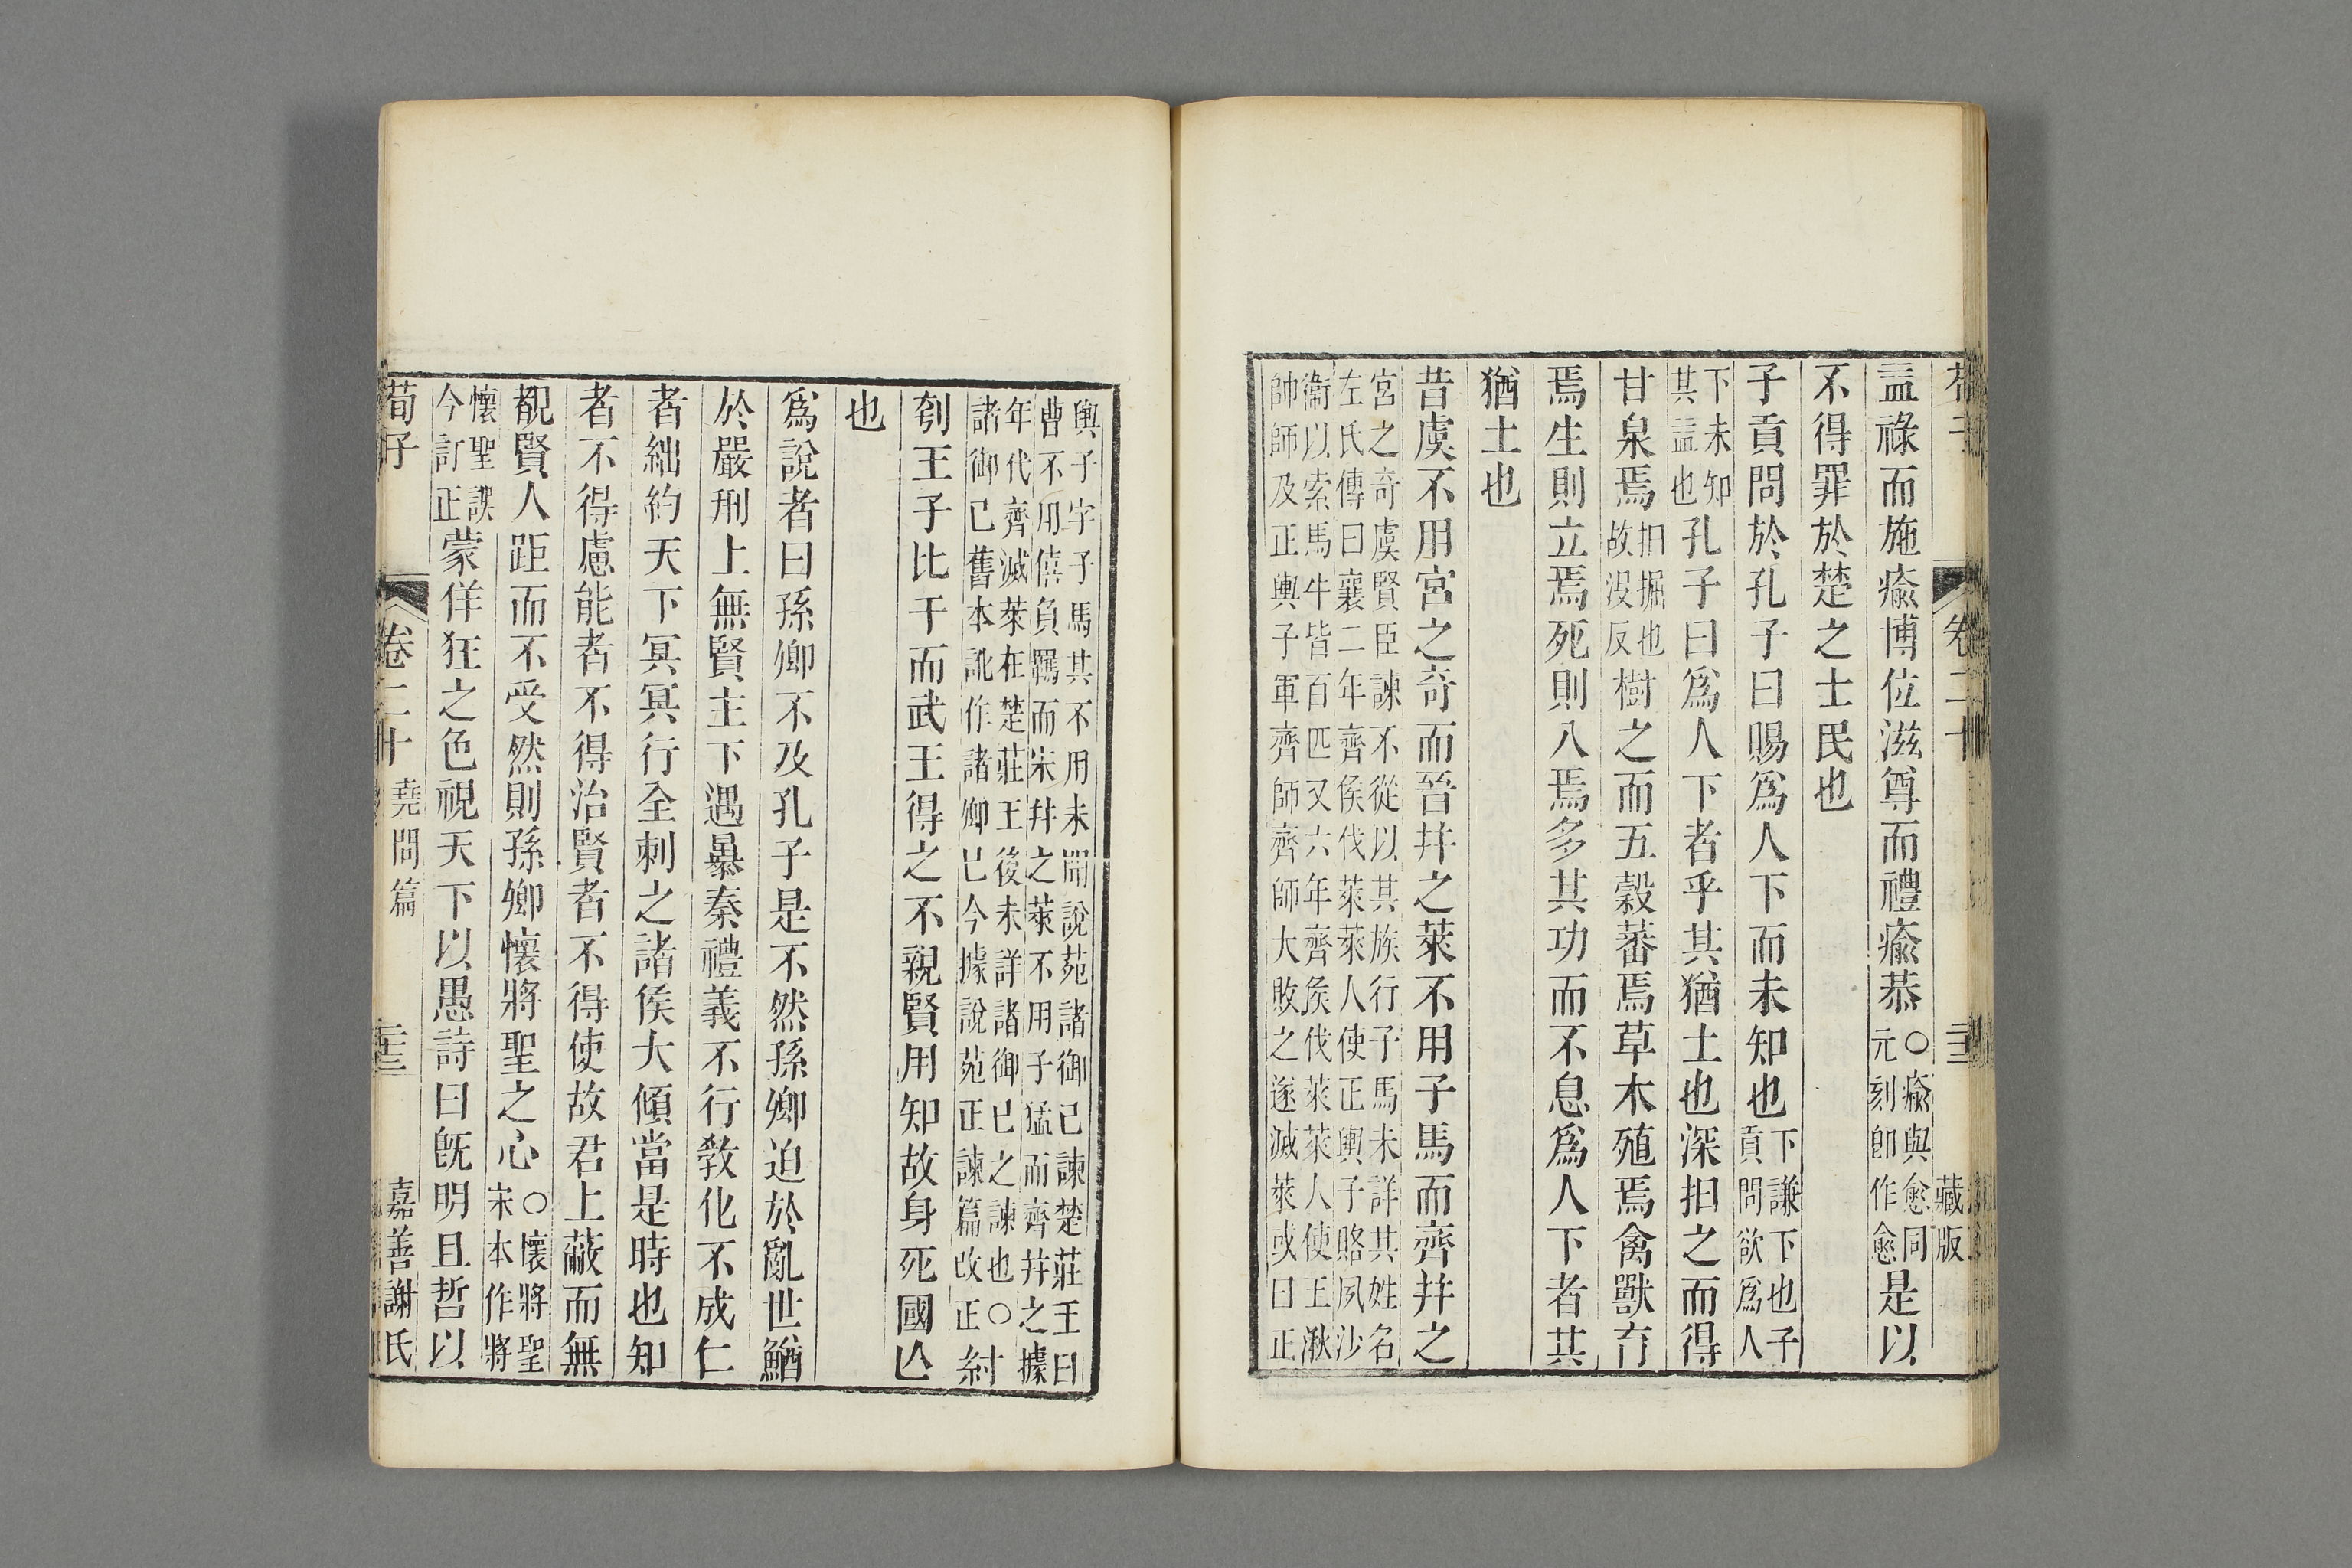 卷二十
藏版
益祿而施瘉博位滋尊而禮瘉恭○瘉與愈同元刻卽作愈是以
不得罪於楚之士民也
子貢問於孔子曰賜爲人下而未知也下謙下也子貢問欲爲人
下未知其益也孔子曰爲人下者乎其猶土也深抇之而得
甘泉焉抇掘也故沒反樹之而五穀蕃焉草木殖焉禽獸育
焉生則立焉死則入焉多其功而不息爲人下者其
猶土也
昔虞不用宮之奇而晉幷之萊不用子馬而齊幷之
宮之奇虞賢臣諫不從以其族行子馬未詳其姓名
左氏傳曰襄二年齊侯伐萊萊人使正輿子賂夙沙
衞以索馬牛皆百匹又六年齊侯伐萊萊人使王湫
帥師及正輿子軍齊師齊師大敗之遂滅萊或曰正
輿子字子馬其不用未聞說苑諸御己諫楚莊王曰
曹不用僖負羈而宋幷之萊不用子猛而齊幷之據
年代齊滅萊在楚莊王後未詳諸御己之諫也○
諸御己舊本訛作諸卿己今據說苑正諫篇改正紂
刳王子比干而武王得之不親賢用知故身死國亾
也
爲說者曰孫卿不及孔子是不然孫卿迫於亂世鰌
於嚴刑上無賢主下遇暴秦禮義不行敎化不成仁
者絀約天下冥冥行全刺之諸侯大傾當是時也知
者不得慮能者不得治賢者不得使故君上蔽而無
覩賢人距而不受然則孫卿懷將聖之心○懷將聖宋本作將
懷聖誤今訂正蒙佯狂之色視天下以愚詩曰旣明且哲以
荀子
卷二十
堯問篇
二十三
嘉善謝氏